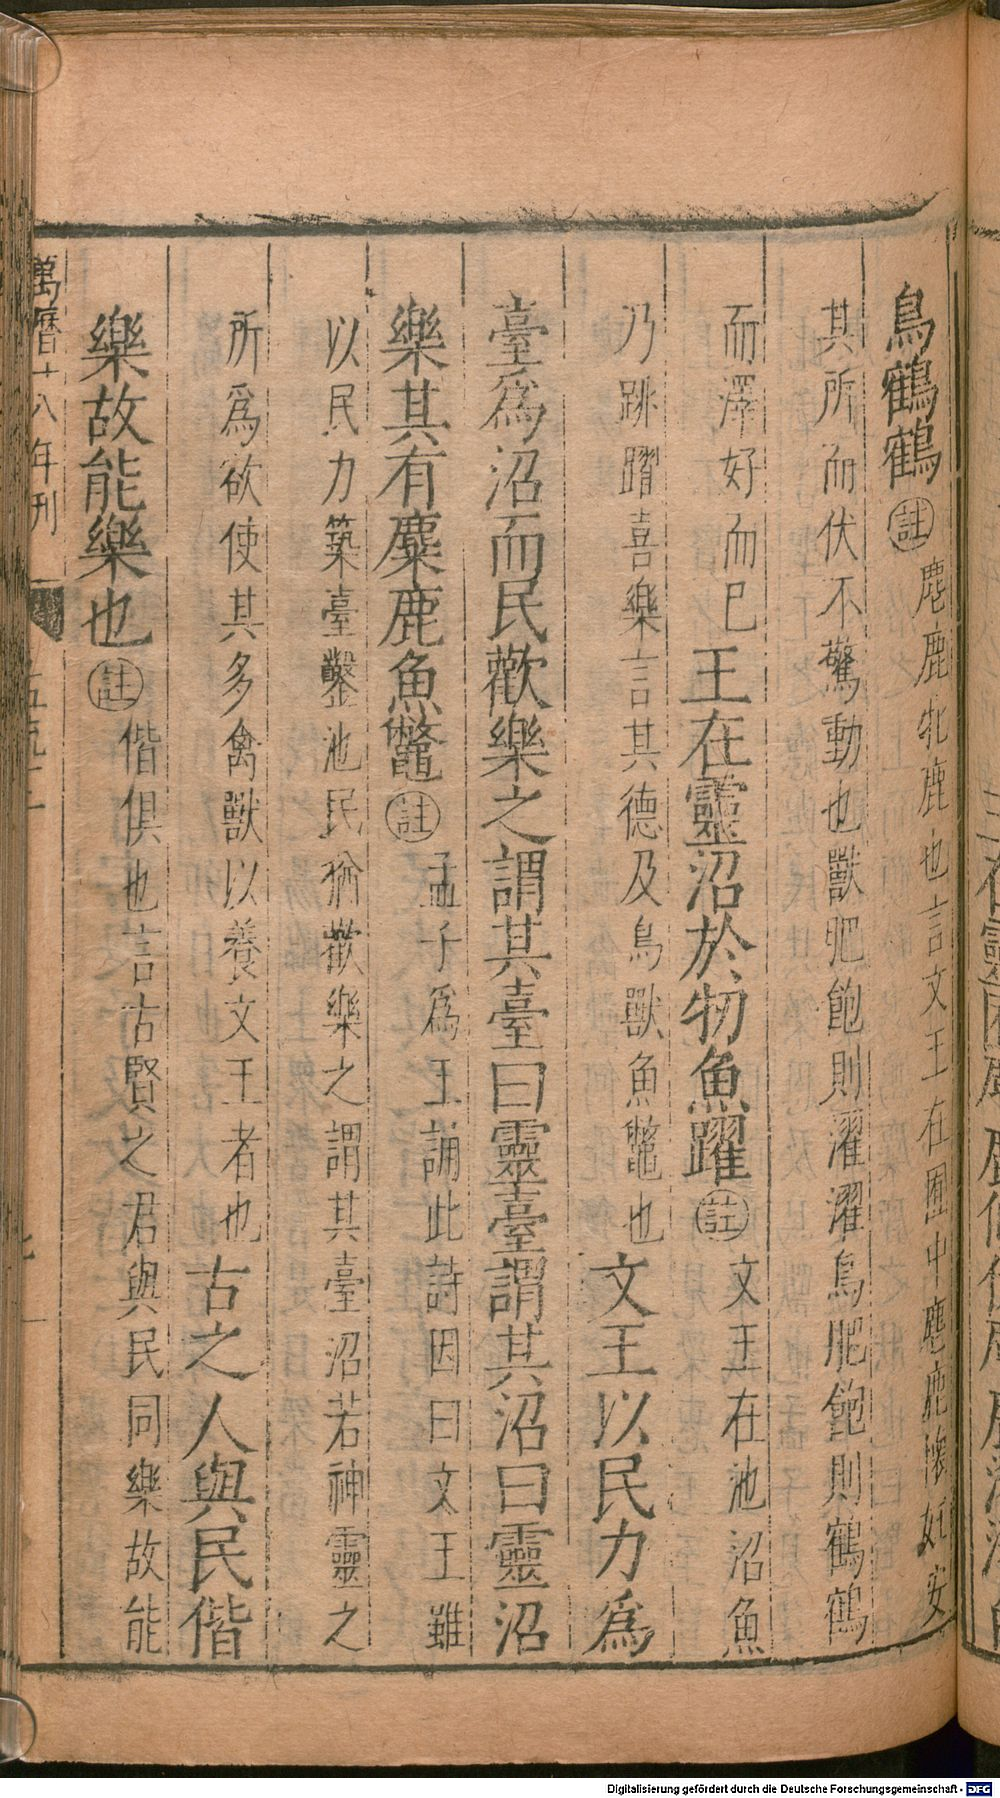 鳥鶴鶴註麀鹿牝鹿也言文王在囿中麀鹿懷妊安
其所而伏不驚動也獸肥飽則濯濯鳥肥飽則鶴鶴
而澤好而已王在靈沼於物魚躍註文王在池沼魚
乃跳躍喜樂言其德及鳥獸魚鼈也文王以民力爲
臺爲沼而民歡樂之謂其臺曰靈臺謂其沼曰靈沼
樂其有麋鹿魚鼈註孟子爲王誦此詩因曰文王雖
以民力築臺鑿池民猶歡樂之謂其臺沼若神靈之
所爲欲使其多禽獸以養文王者也古之人與民偕
樂故能樂也註偕俱也言古賢之君與民同樂故能
萬曆十八年刊
Digitalisierung gefördert durch die Deutsche Forschungsgemeinschaft - DFG